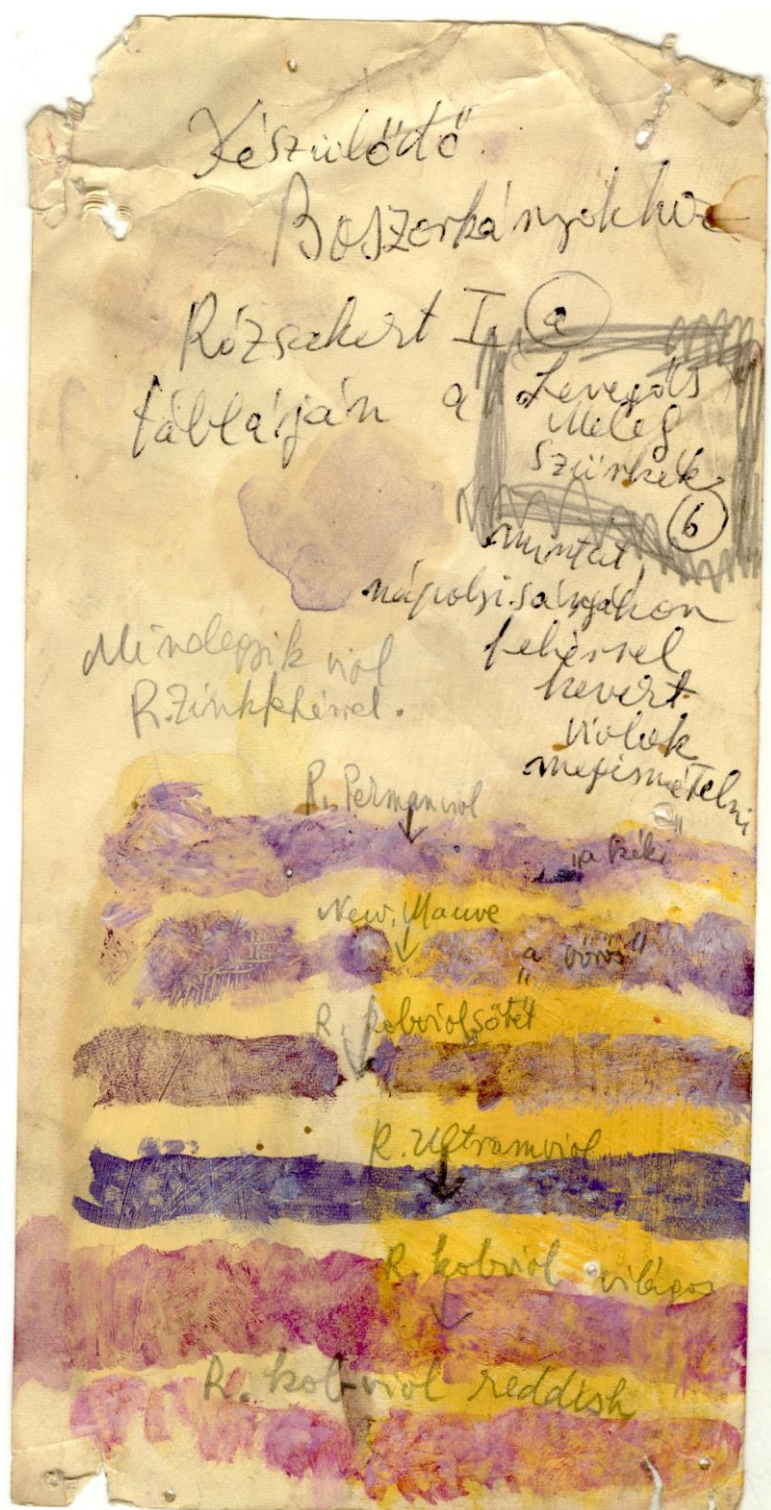 Készülődő
Boszorkányokhoz
Rózsakert I. a
táblájján a Levegős
Meleg
Szürkék
b
mintát,
nápolyi sárgákon
fehérrel
kevert
violák
megismételni
Mindegyik viol
R. Zinkfehérrel.
R. Permanviol
"a kék"
New. Mauve
"a vörös"
R. kobviolsötét
R. Ultramviol
R. kobviol világos
R. kobviol reddish